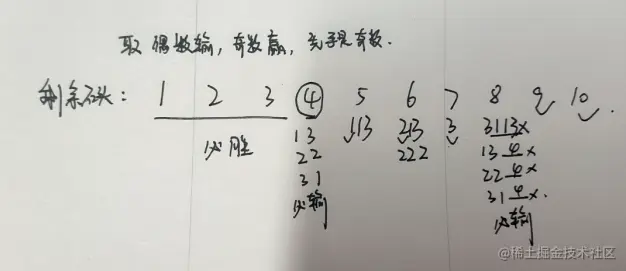 取偶数输，奇数赢，先手是奇数.
剩余石头： 1 2 3 ④ 5 6 7 8 9 10
必胜
13 113 213 3 3113x
22 222 13 4 x
31 22 4 x
必输 31 4 x.
必输
@稀土掘金技术社区